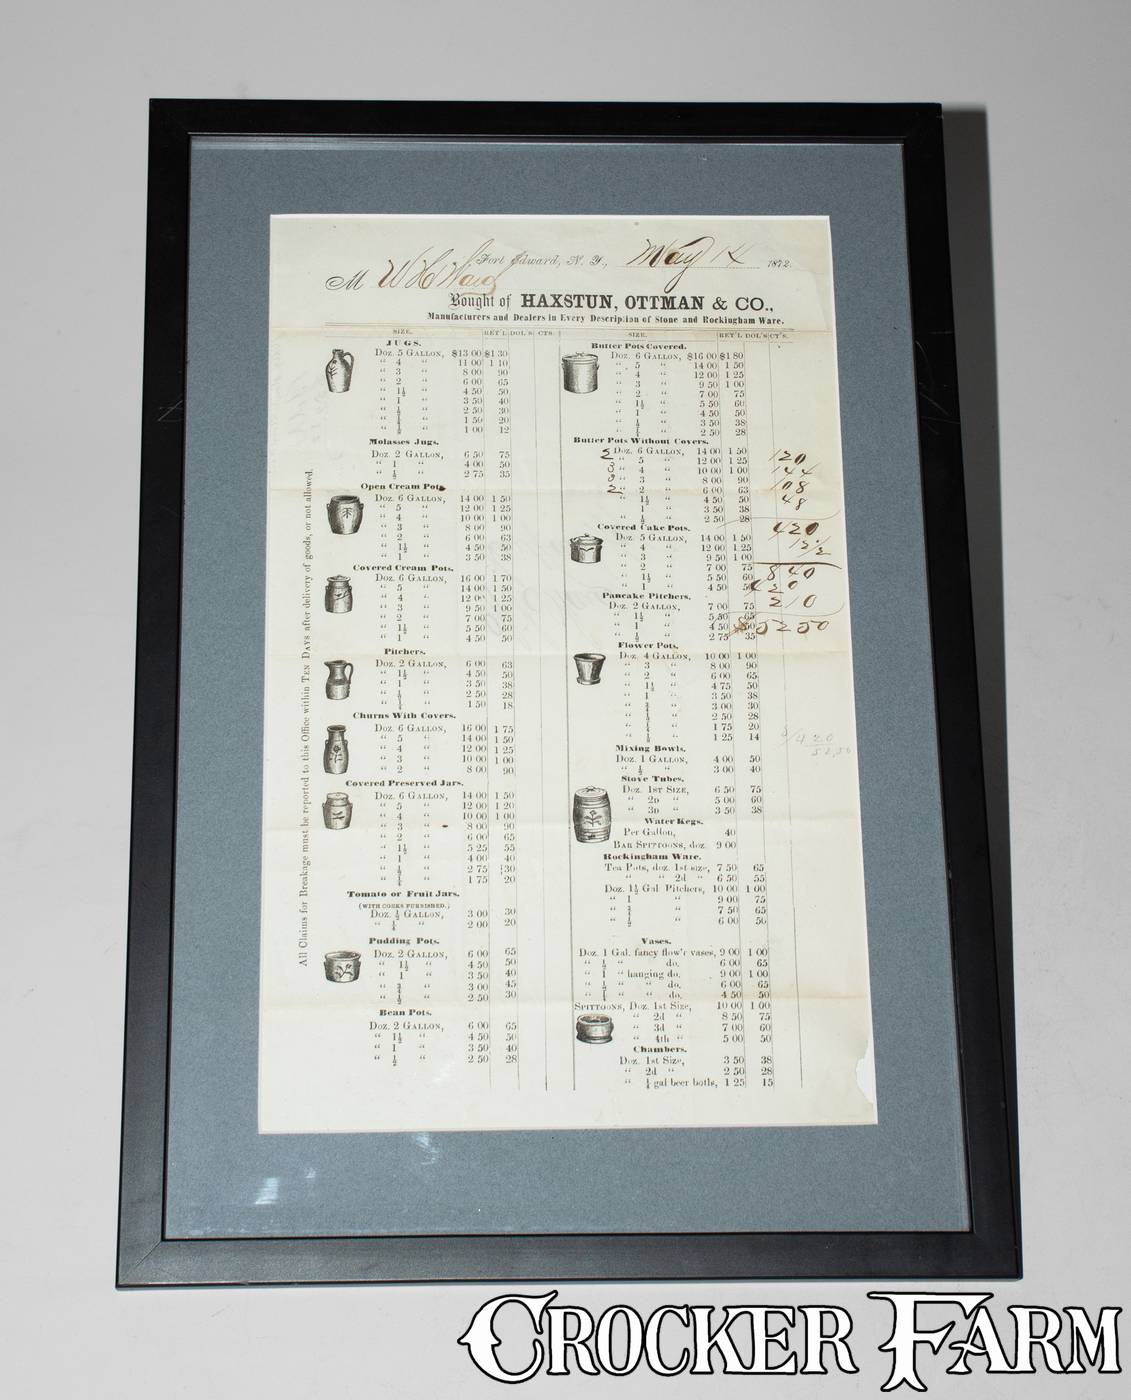 Fort Edward, N. Y., May 14 1872.
M W
Bought of HAXSTUN, OTTMAN & CO.,
Manufacturers and Dealers in Every Description of Stone and Rockingham Ware.
All Claims for Breakage must be reported to this Office within TEN DAYS after delivery of goods, or not allowed.
SIZE. RET'L DOL'S CTS.
JUGS.
Doz. 5 GALLON, $13 00 $1 30
" 4 " 11 00 1 10
" 3 " 8 00 90
" 2 " 6 00 65
" 1½ " 4 50 50
" 1 " 3 50 40
" ½ " 2 50 30
" ¼ " 1 50 20
" " 1 00 12
Molasses Jugs.
Doz. 2 GALLON, 6 50 75
" 1 " 4 00 50
" ½ " 2 75 35
Open Cream Pots
Doz. 6 GALLON, 14 00 1 50
" 5 " 12 00 1 25
" 4 " 10 00 1 00
" 3 " 8 00 90
" 2 " 6 00 63
" 1½ " 4 50 50
" 1 " 3 50 38
Covered Cream Pots.
Doz. 6 GALLON, 16 00 1 70
" 5 " 14 00 1 50
" 4 " 12 00 1 25
" 3 " 9 50 1 00
" 2 " 7 00 75
" 1½ " 5 50 60
" 1 " 4 50 50
Pitchers.
Doz. 2 GALLON, 6 00 63
" 1½ " 4 50 50
" 1 " 3 50 38
" ½ " 2 50 28
" ¼ " 1 50 18
Churns With Covers.
Doz. 6 GALLON, 16 00 1 75
" 5 " 14 00 1 50
" 4 " 12 00 1 25
" 3 " 10 00 1 00
" 2 " 8 00 90
Covered Preserved Jars.
Doz. 6 GALLON, 14 00 1 50
" 5 " 12 00 1 20
" 4 " 10 00 1 00
" 3 " 8 00 90
" 2 " 6 00 65
" 1½ " 5 25 55
" 1 " 4 00 40
" ½ " 2 75 30
" ¼ " 1 75 20
Tomato or Fruit Jars.
(WITH CORKS FURNISHED.)
Doz. ½ GALLON, 3 00 30
" ¼ " 2 00 20
Pudding Pots.
Doz. 2 GALLON, 6 00 65
" 1½ " 4 50 50
" 1 " 3 50 40
" ¾ " 3 00 45
" ½ " 2 50 30
Bean Pots.
Doz. 2 GALLON, 6 00 65
" 1½ " 4 50 50
" 1 " 3 50 40
" ½ " 2 50 28
SIZE. RET'L DOL'S CT'S.
Butter Pots Covered.
Doz. 6 GALLON, $16 00 $1 80
" 5 " 14 00 1 50
" 4 " 12 00 1 25
" 3 " 9 50 1 00
" 2 " 7 00 75
" 1½ " 5 50 60
" 1 " 4 50 50
" ½ " 3 50 38
" ¼ " 2 50 28
Butter Pots Without Covers.
2 Doz. 6 GALLON, 14 00 1 50
3 " 5 " 12 00 1 25 120
3 " 4 " 10 00 1 00 144
2 " 3 " 8 00 90 108
" 2 " 6 00 63 48
" 1½ " 4 50 50
" 1 " 3 50 38
" ½ " 2 50 28
Covered Cake Pots. 420
Doz. 5 GALLON, 14 00 1 50 12½
" 4 " 12 00 1 25
" 3 " 9 50 1 00
" 2 " 7 00 75 840
" 1½ " 5 50 60 420
" 1 " 4 50 50 210
Pancake Pitchers.
Doz. 2 GALLON, 7 00 75
" 1½ " 5 50 65
" 1 " 4 50 50 $5250
" ½ " 2 75 35
Flower Pots.
Doz. 4 GALLON, 10 00 1 00
" 3 " 8 00 90
" 2 " 6 00 65
" 1½ " 4 75 50
" 1 " 3 50 38
" ¾ " 3 00 30
" ½ " 2 50 28
" ¼ " 1 75 20
" ⅛ " 1 25 14
Mixing Bowls.
Doz. 1 GALLON, 4 00 50
" ½ " 3 00 40
Stove Tubes.
Doz. 1ST SIZE, 6 50 75
" 2D " 5 00 60
" 3D " 3 50 38
Water Kegs.
Per Gallon, 40
BAR SPITTOONS, doz. 9 00
Rockingham Ware.
Tea Pots, doz. 1st size, 7 50 65
" " 2d " 6 50 55
Doz. 1½ Gal Pitchers, 10 00 1 00
" 1 " 9 00 75
" ¾ " 7 50 65
" ½ " 6 00 50
Vases.
Doz. 1 Gal. fancy flow'r vases, 9 00 1 00
" ½ " do. 6 00 65
" 1 " hanging do. 9 00 1 00
" ½ " " do. 6 00 65
" ¼ " " do. 4 50 50
SPITTOONS, Doz. 1st Size, 10 00 1 00
" 2d " 8 50 75
" 3d " 7 00 60
" 4th " 5 00 50
Chambers.
Doz. 1st Size, 3 50 38
" 2d " 2 50 28
" ¼ gal beer botls, 1 25 15
CROCKER FARM